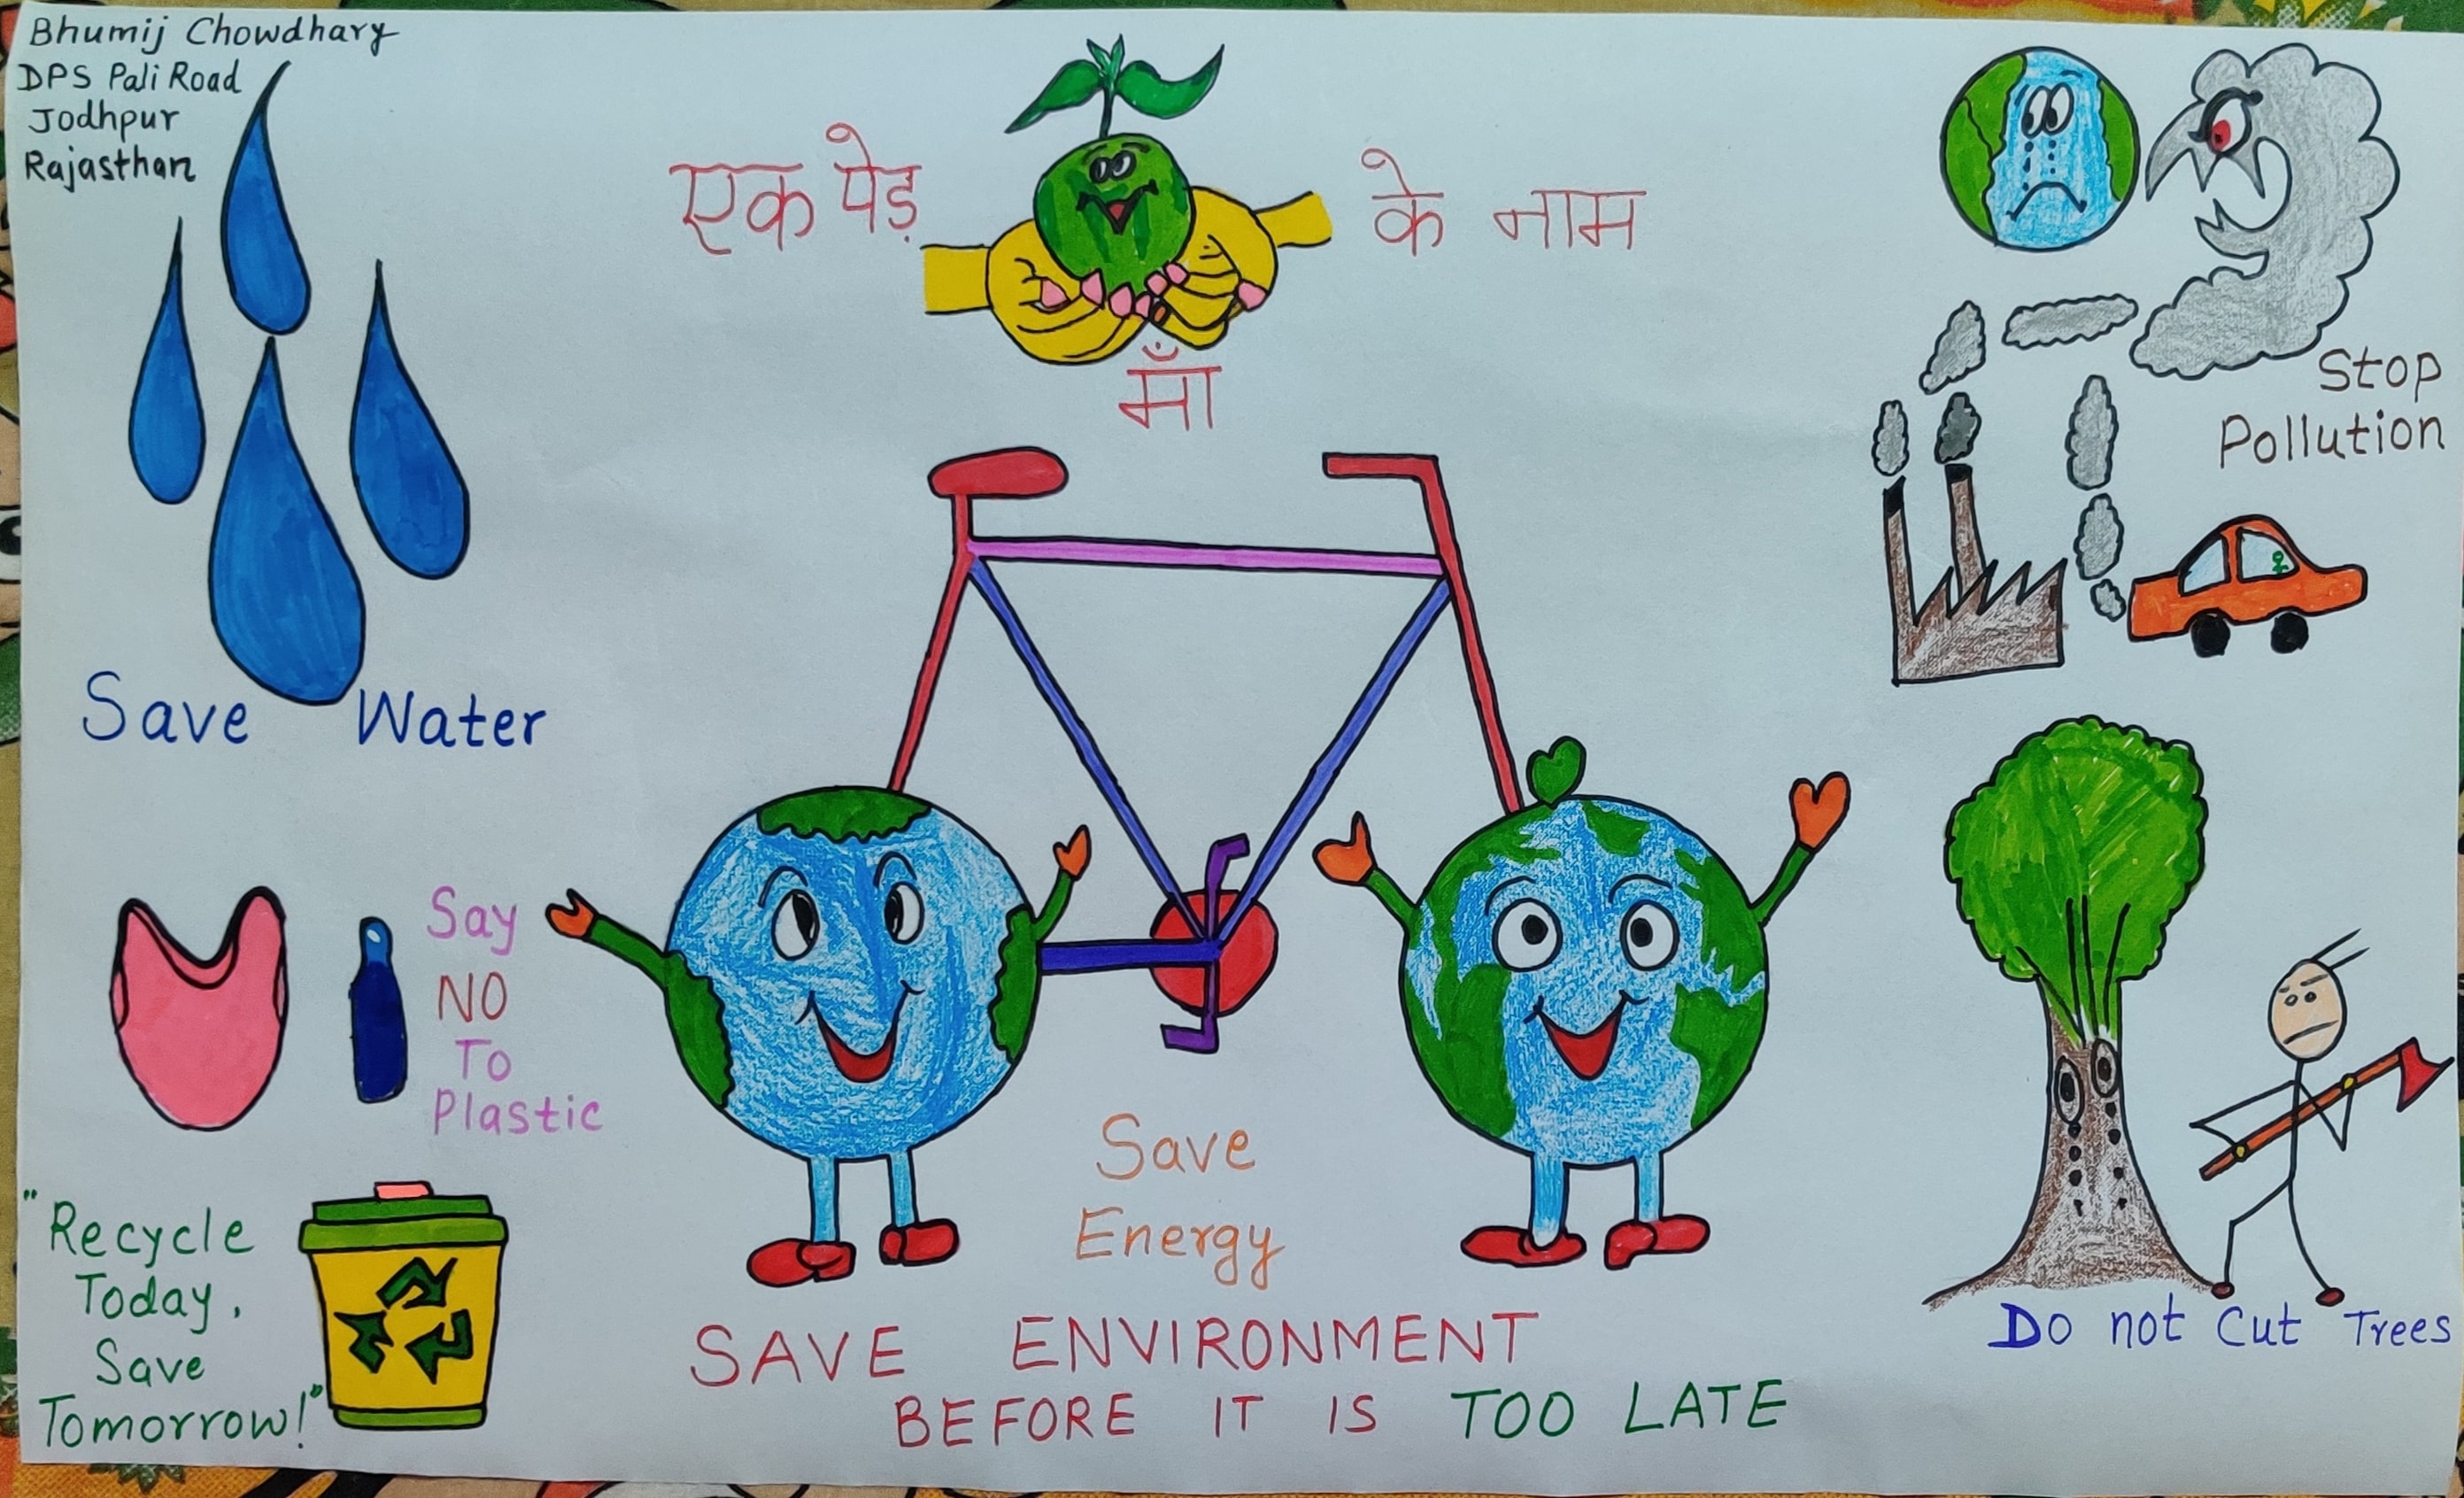 Bhumij Chowdhary
DPS Pali Road
Jodhpur
Rajasthan
एक पेड़ के नाम
माँ
Stop
Pollution
Save Water
Say
NO
To
Plastic
"Recycle
Today,
Save
Tomorrow!"
Save
Energy
Do not Cut Trees
SAVE ENVIRONMENT
BEFORE IT IS TOO LATE